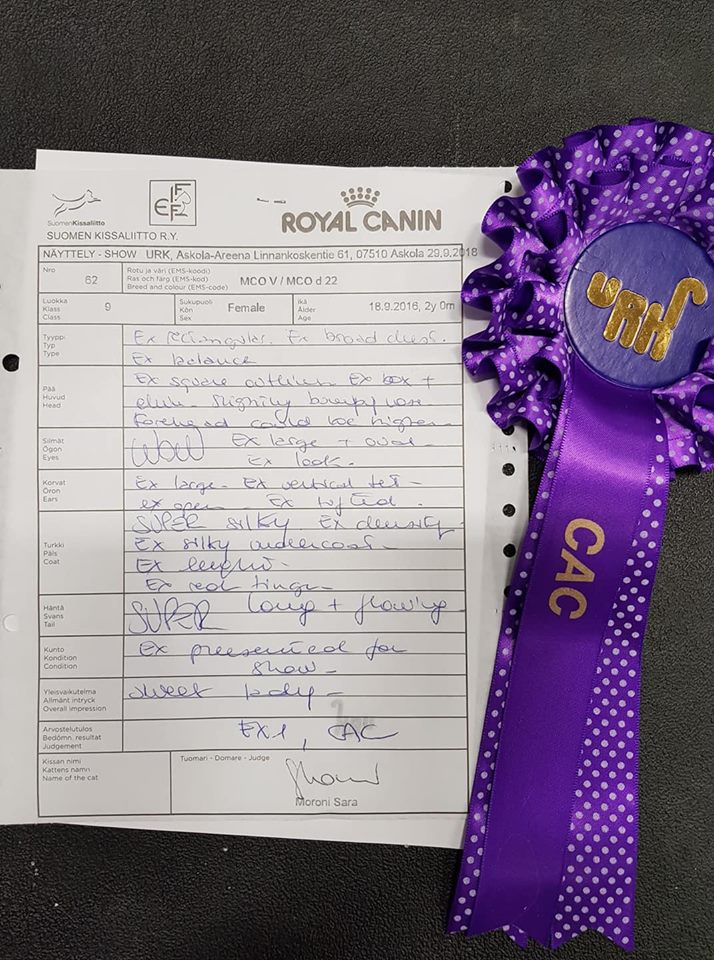 SuomenKissaliitto
FIFe
SUOMEN KISSALIITTO R.Y.
ROYAL CANIN
NÄYTTELY - SHOW URK, Askola-Areena Linnankoskentie 61, 07510 Askola 29.9.2018
Nro
62
Rotu ja väri (EMS-koodi)
Ras och färg (EMS-kod)
Breed and colour (EMS-code)
MCO V / MCO d 22
Luokka
Klass
Class
9
Sukupuoli
Kön
Sex
Female
Ikä
Ålder
Age
18.9.2016, 2y 0m
Tyyppi
Typ
Type
Ex rectangular. Ex broad chest.
Ex balance
Pää
Huvud
Head
Ex square outline Ex box +
chin. Slightly bumpy nose
Forehead could be higher
Silmät
Ögon
Eyes
WOW Ex large + oval
Ex look.
Korvat
Öron
Ears
Ex large. Ex vertical set
ex open Ex tufted.
Turkki
Päls
Coat
SUPER silky. Ex density
Ex silky undercoat
Ex lenght
Ex red tinge
Häntä
Svans
Tail
SUPER long + flowing
Kunto
Kondition
Condition
Ex presented for
show
Yleisvaikutelma
Allmänt intryck
Overall impression
sweet lady
Arvostelutulos
Bedömn. resultat
Judgement
EX1, CAC
Kissan nimi
Kattens namn
Name of the cat
Tuomari - Domare - Judge
Moroni Sara
URK
CAC